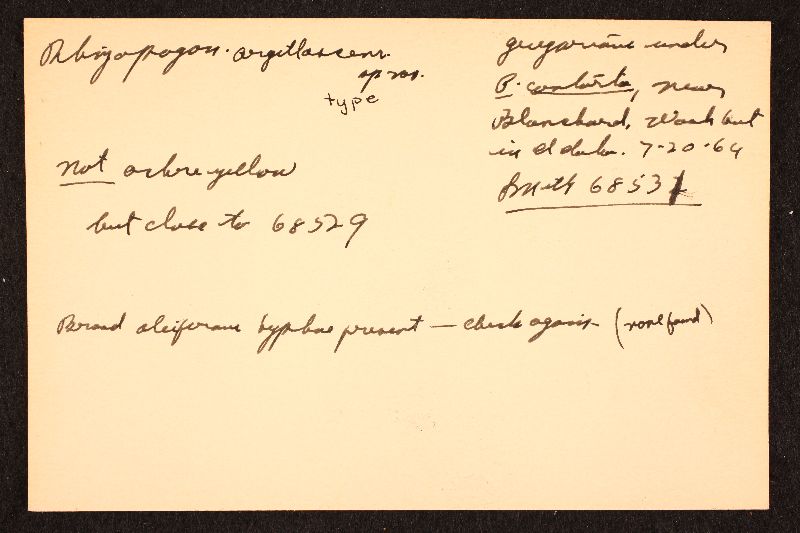 Rhizopogon argillascens
sp nov.
type
gregarious under
P. contorta, near
Blanchard, Wash but
in Idaho. 7-20-64
Smith 68531
not ochre-yellow
but close to 68529
Broad oleiferous hyphae present — check again (none found)